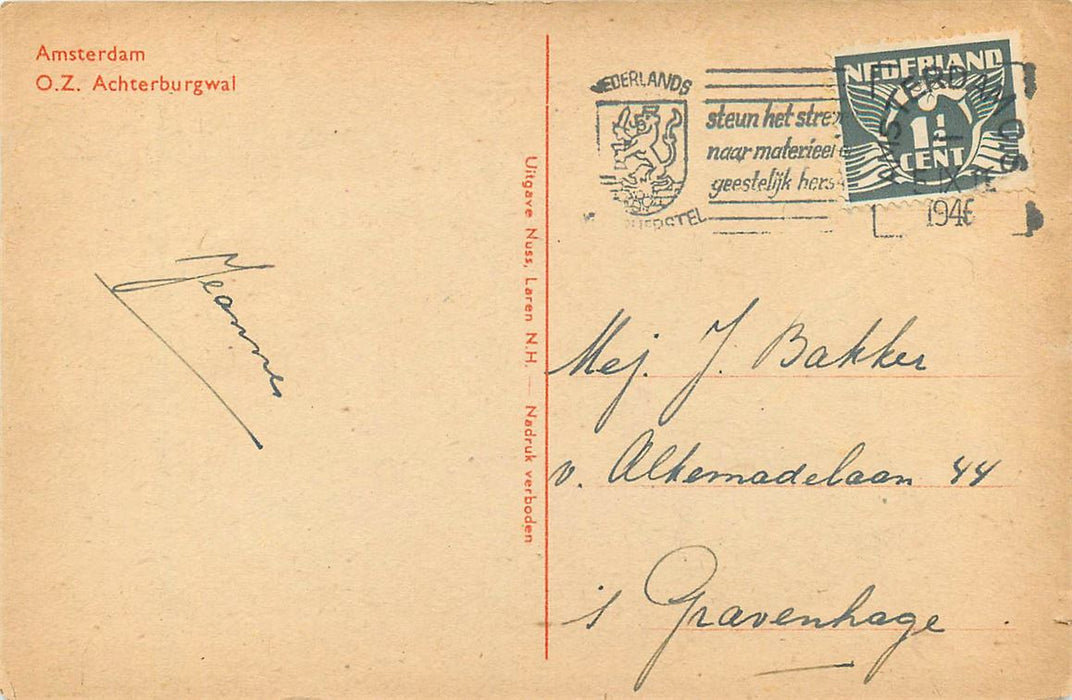 Amsterdam
O.Z. Achterburgwal
Jeannes
Uitgave Nuss, Laren N.H. — Nadruk verboden
NEDERLANDS
steun het stre
naar materieel
geestelijk hers
NEDERLAND
1½
CENT
AMSTERDAM
1946
Mej. J. Bakker
v. Alkemadelaan 44
's Gravenhage